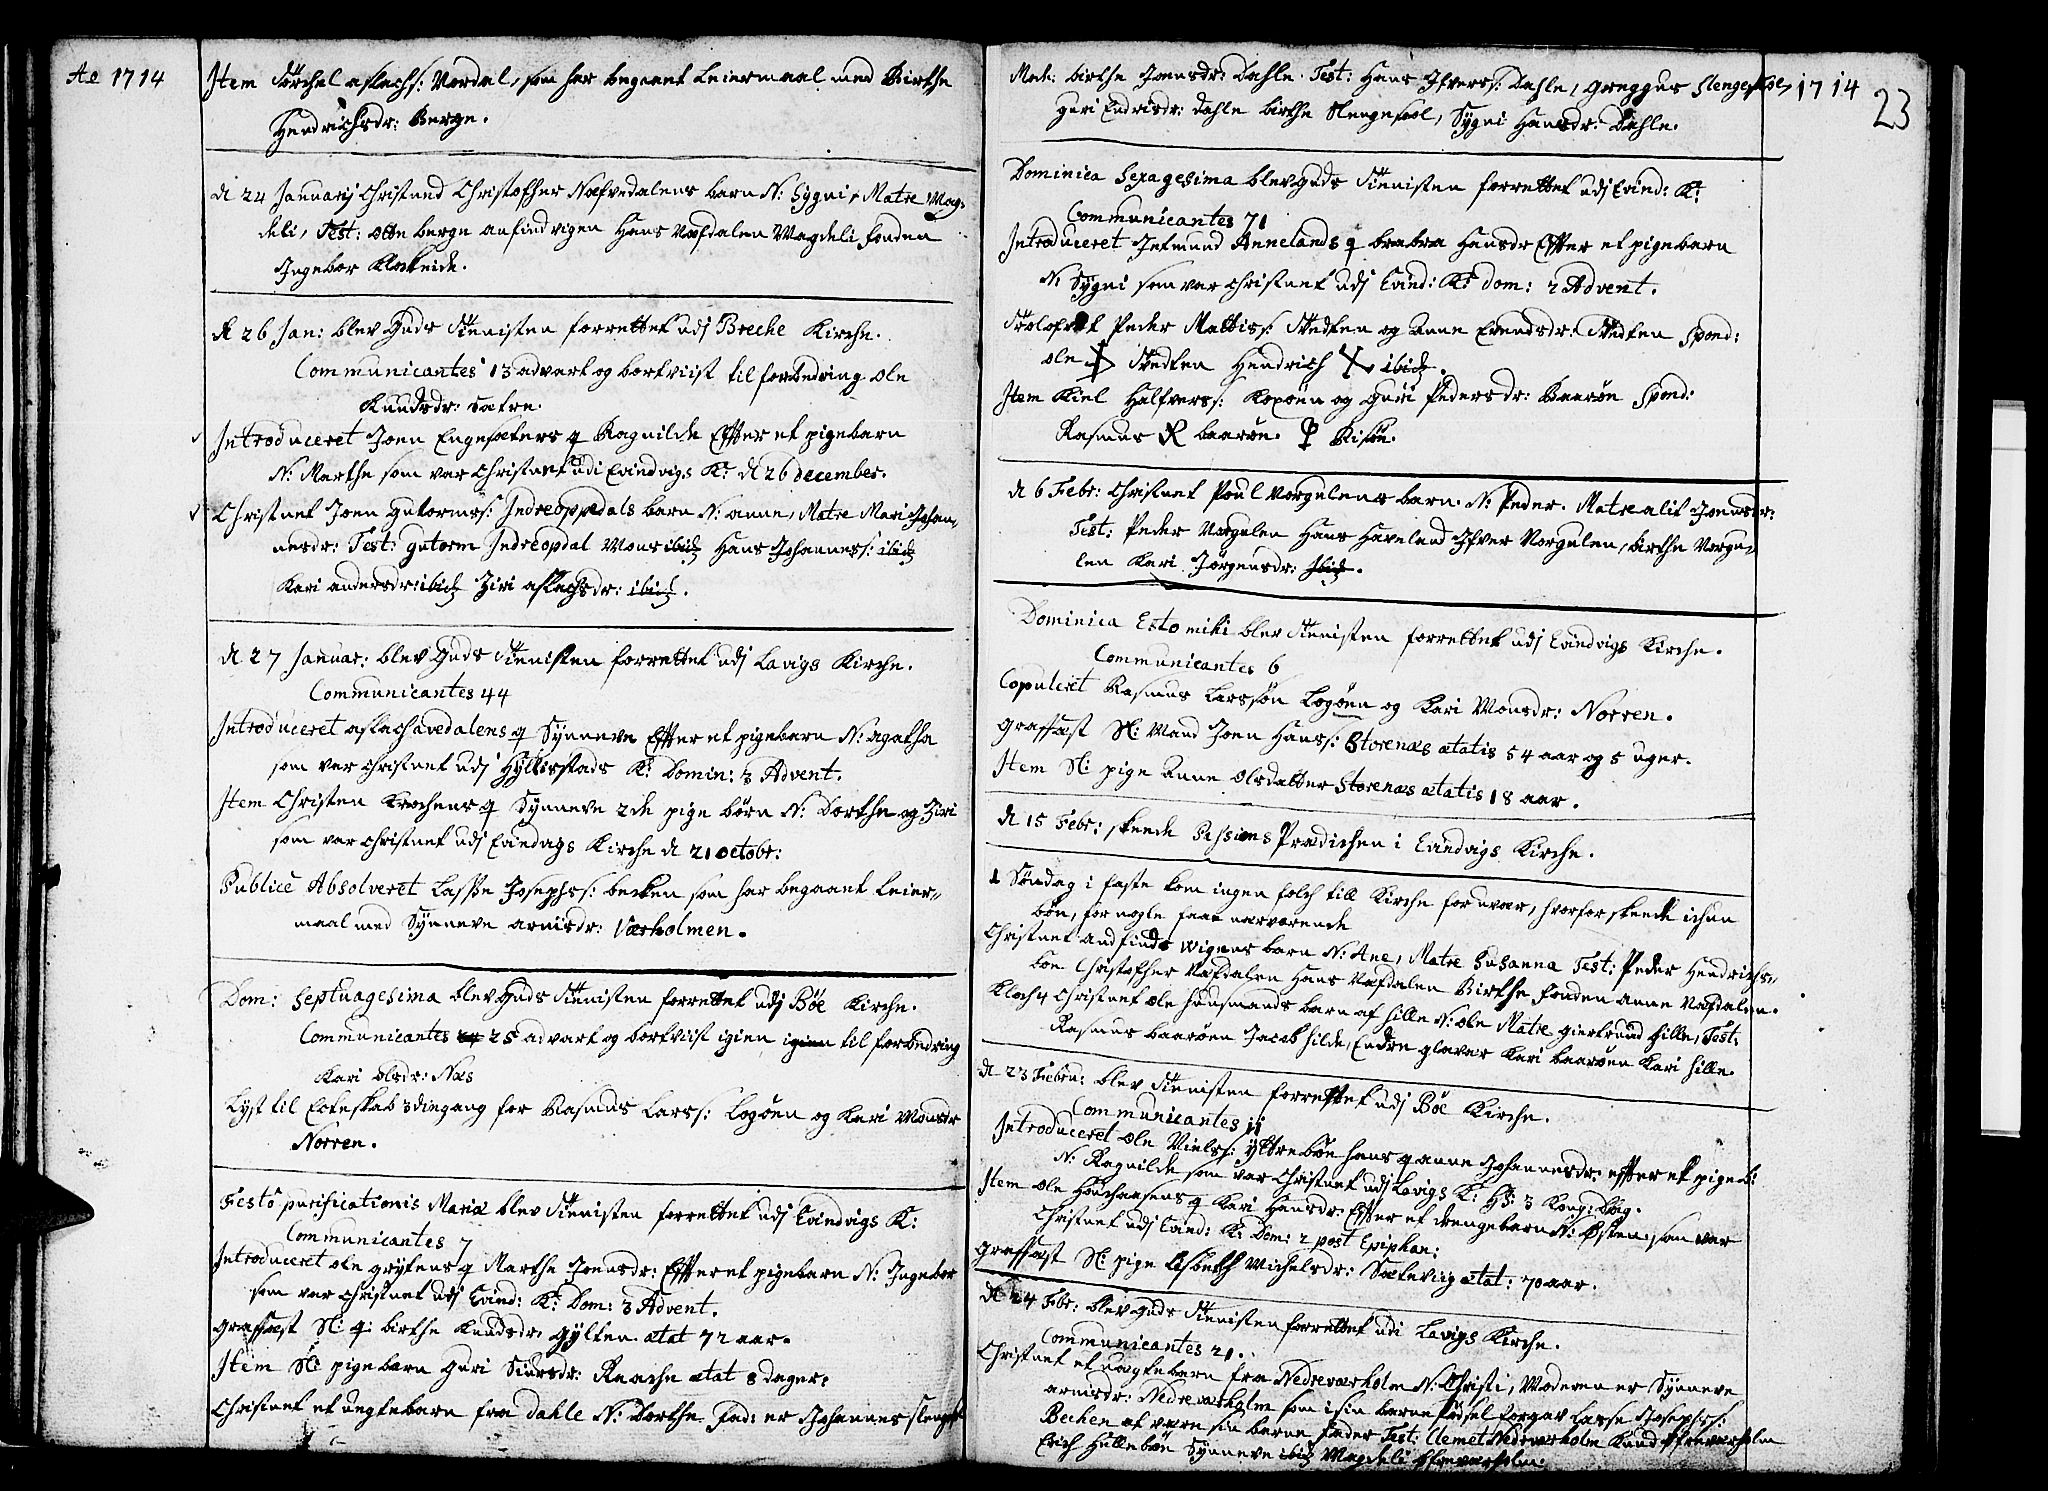 Ao 1714
Item Törchel aslachs: Vordal, som har begaaet Leiermaal med Birthe
Hendrichsdr: Berge.
d 24 Januarij Christned Christofher Næsvedalens barn N: Sygni, Matre Mag¬
deli, Test: otte berge anfind vigen Hans Næsdalen Magdeli fonden
Ingebor
d 26 Jan: blev Guds Tienisten forrettet udj Breche Kirche.
Communicantes 13 advart og bortviist til forbedring ole
Knudsdr: sætre.
Introduceret Joen Engesæters q Ragnilde Effter et pigebarn
N: Marthe som var Christnet udi Evindvigs K: d 26 december.
Christnet Joen Gutorms: Indreoppedals barn N: anne, Matre Mari Johan¬
nesdr: Test: gutorm Indreopdal Mons ibid Hans Johanness: ibid
Kari andersdr: ibid Ziri aslachsdr: ibid.
d 27 Januar: blev Guds Tienisten forrettet udj Lavigs Kirche.
Communicantes 44
Introduceret aslach avedalens q Synneve Effter et pigebarn N: agatha
som var Christnet udj Hyllestads K: Domin: 3 Advent.
Item Christen Krochens q Synneve 2de pige börn N: Dorthe og Ziri
som var Christnet udj Evindvigs Kirche d 21 octobr:
Publicè Absolveret Lasse Josephs: becken som har begaaet Leier¬
maal med Synneve arnisdr: Værholmen.
Dom: Septuagesima blev Guds Tienisten forrettet udj Böe Kirche.
Communicantes 25 advart og bortviist igien igien til forbedring
Kari olsdr: Næs
Lyst til Ecteskab 3die gang for Rasmus Larss: Logöen og Kari Monsdr
Norren.
Festo purificationis Mariæ blev Tienisten forrettet udj Evindvigs K:
Communicantes 7
Introduceret ole grytens q Marthe Jonsdr: Effter et pigebarn N: Ingebor
som var Christnet udj Evind: K: Dom: 3 Advent.
Graffæst Sl: q: birthe Knudsdr: Gylten ætat 72 aar.
Item Sl: pigebarn Guri Siursdr: Raache ætat 8 dager.
Christnet et uegtebarn fra Dahle N: Dorthe. Fad: er Johannes
1714
23
Mat: birthe Jonsdr: Dahle. Test: Hans Ifvers: Dahle, Greggus Slengesol,
guri Endrisdr: dahle birthe Slengesol, Sygni Hansdr: Dahle.
Dominica Sexagesima blev Guds Tienisten forrettet udj Evind: K:
Communicantes 71
Introduceret Jetmund Annelands q brabra Hansdr Effter et pigebarn
N: Sygni som var Christnet udj Evind: K: dom: 2 Advent.
Trolofvet Peder Mattiss: Stedten og Anne Evendsdr: Stedten Spond:
ole Stedten Hendrich ibid.
Item Kiel Halfvers: Koxöen og Guri Pedersdr: Baaröe Spond:
Rasmus R baaröe. P Risöe.
d 6 Febr: Christnet Poul Vorgulens barn N: Peder. Matre alit Jonsdr:
Test: Peder Vorgulen Hans Haveland Ifver Vorgulen, birthe Vorgu¬
len Kari Jörgensdr: Ibid.
Dominica Estomihi blev Tienisten forrettet udj Evindvigs Kirche.
Communicantes 6
Copuleret Rasmus Larssön Logöen og Kari Monsdr: Norren.
Graffæst Sl: Mand Joen Hanss: Storenæs ætatis 54 aar og 5 uger.
Item Sl: pige Anne Olsdatter Storenæs ætatis 18 aar.
d 15 Febr: skeede Passions Prædichen i Evindvigs Kirche.
1 Söndag i faste kom ingen folch till Kirche for uvær, hvorfor skeede ichun
bön, for nogle faae nærværende
Christnet andfinds wigens barn N: Ane, Matre Susanna Test: Peder Hendrichs¬
böe Christofher Næsdalen Hans Næsdalen Birthe fonden anne Næsdalen.
Kloch 4 Christnet ole huusmands barn af hille N: ole Matre giertruud hille, Test:
Rasmus baaröen Jacob hilde, Endre glavær Kari baaröen Kari hille.
d 23 Febru: blev Tienisten forrettet udj Böe Kirche.
Communicantes 11
Introduceret ole Niels: yttreböe hans q anne Johannesdr: effter et pigeb:
N: Ragnilde som var Christnet udj Lavigs K: H: 3 Kong: Dag.
Item ole q Kari Hansdr: Effter et drengebarn N: Østen, som var
Christnet udj Evind: K: Dom: 2 post Epiphan:
Graffæst Sl: pige Elsbeth Michelsdr: Sætevig ætat: 70 aar.
d 24 Febr: blev Guds Tienisten forrettet udi Lavigs Kirche.
Communicantes 21.
Christnet et uægte barn fra Nedreværholm N: Christi, Moderen er Synneve
arnisdr: Nedreværholm som i sin barne födsel forgav Lasse Josephs:
Bechen at være sin barne fader Test: Clemet Nedreværholm Knud öfreværholm
Erich Hilleböe Synneve ibid Magdeli öfreværholm.